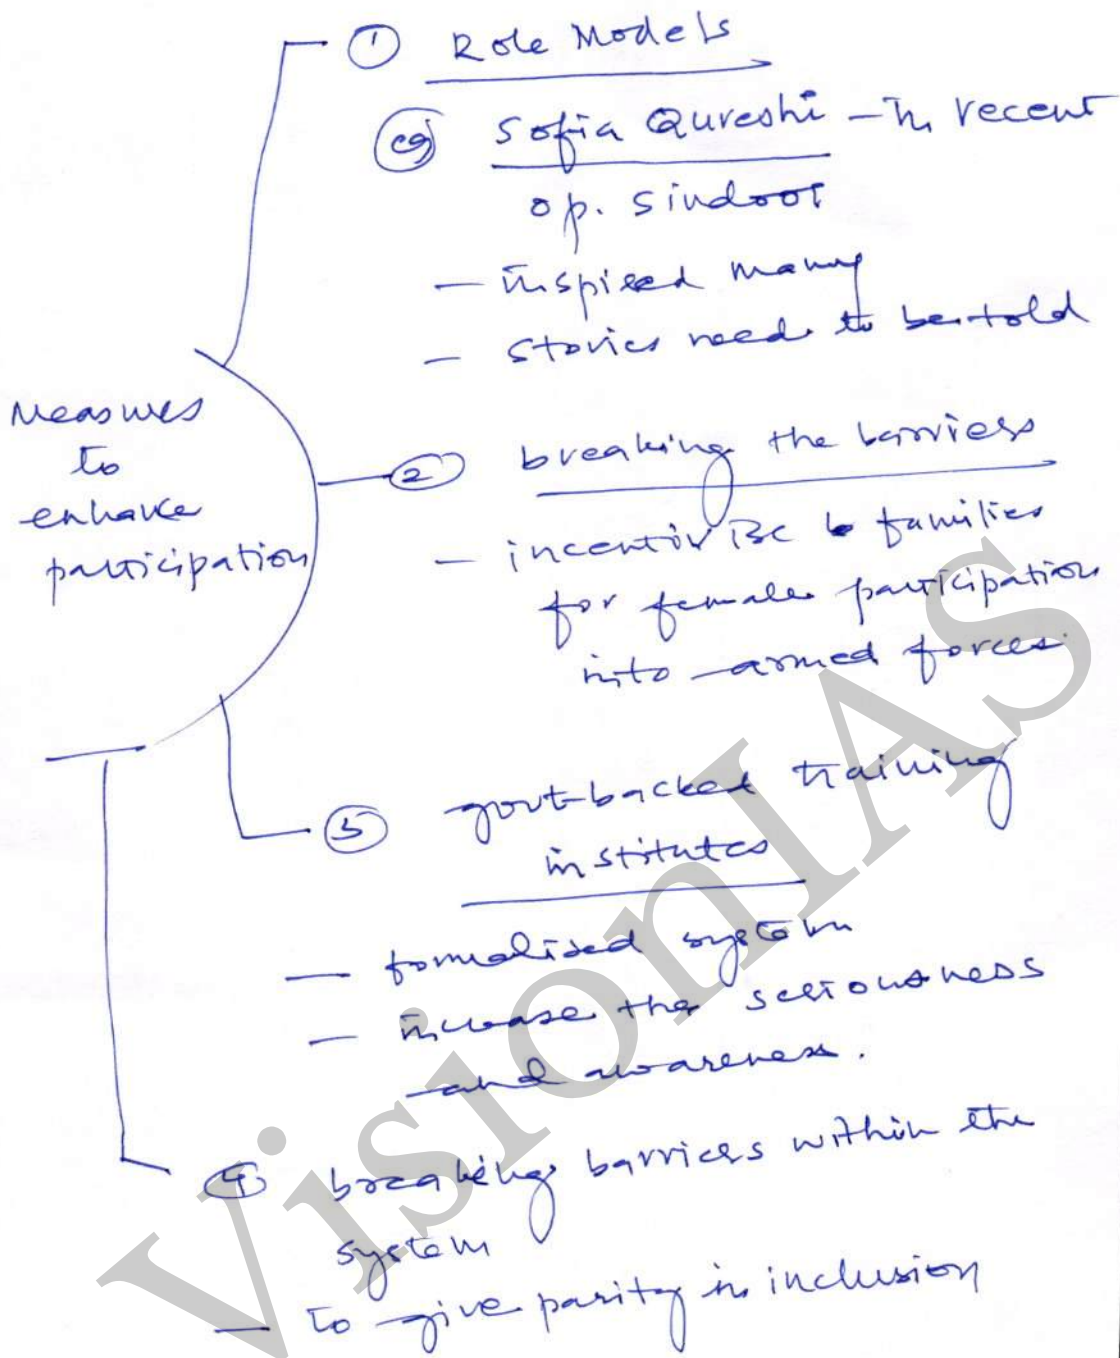 Measures
to
enhance
participation
① Role Models
eg Sofia Qureshi - in recent
op. Sindoor
- inspired many
- stories need to be told
② breaking the barriers
- incentivise families
for female participation
into armed forces.
③ govt-backed training
institutes
- formalised system
- increase the seriousness
and awareness.
④ breaking barriers within the
system
- to give parity in inclusion
VisionIAS